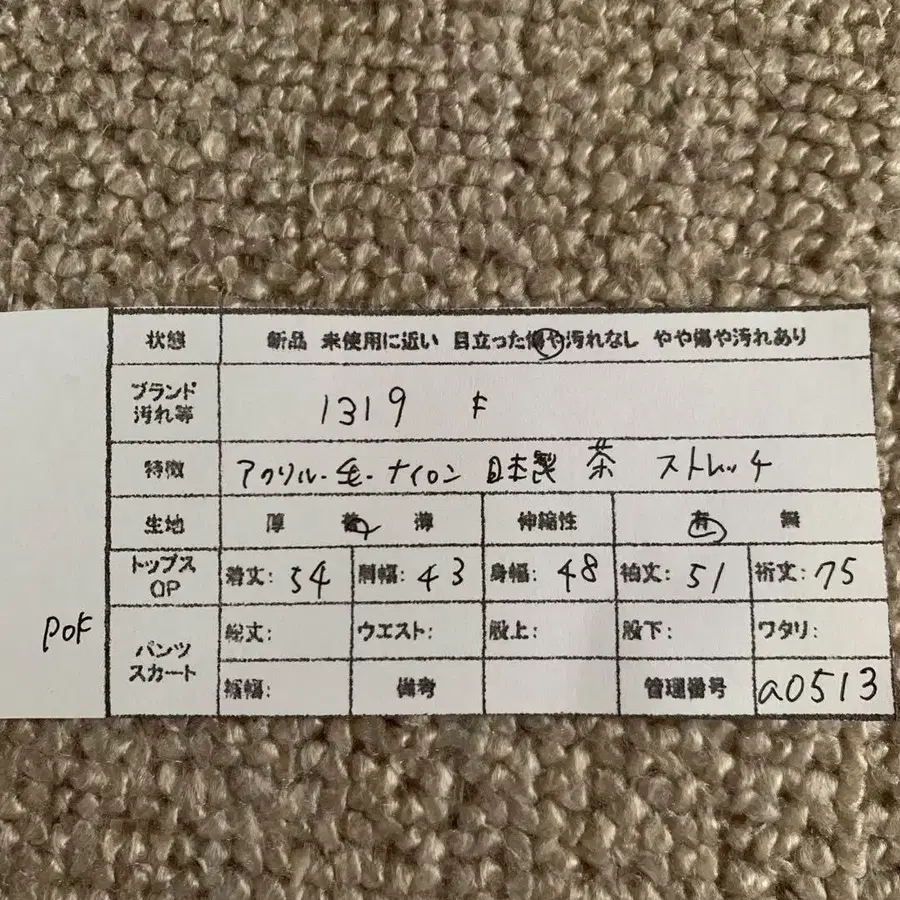 状態 新品 未使用に近い 目立った傷や汚れなし やや傷や汚れあり
ブランド
汚れ等 1319 F
特徴 アクリル・毛・ナイロン 日本製 茶 ストレッチ
生地 厚 薄 伸縮性 有 無
トップス
OP 着丈: 54 肩幅: 43 身幅: 48 袖丈: 51 裄丈: 75
POF
パンツ
スカート 総丈: ウエスト: 股上: 股下: ワタリ:
裾幅: 備考 管理番号 a0513